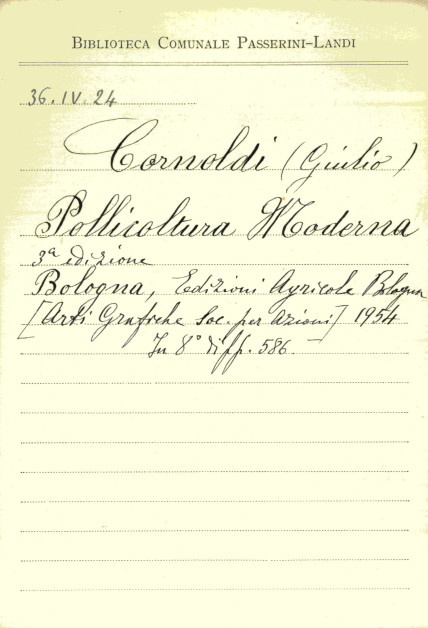 BIBLIOTECA COMUNALE PASSERINI-LANDI
36.IV.24
Cornoldi (Giulio)
Pollicoltura Moderna
3ª edizione
Bologna, Edizioni Agricole Bologna
[Arti Grafiche Soc. per Azioni] 1954
In 8° di pp. 586.